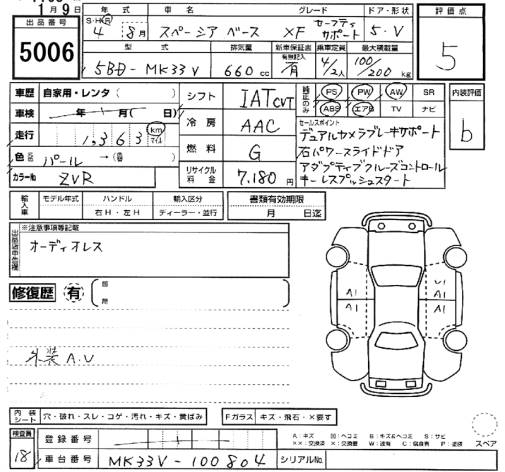 1月9日
出品番号
5006
年式 車名 グレード ドア・形状 評価点
S・H・R 4年 8月 スペーシア ベース XF セーフティサポート 5・V
5
型式 排気量 新車保証書 乗車定員 最大積載量
5BD-MK33V 660cc 有無記入 有 4/2人 100/200kg
車歴 自家用・レンタ( ) シフト IAT CVT 純正のみ PS PW AW SR 内装評価
車検 年 月( 日) ABS エアB TV ナビ
b
冷房 AAC セールスポイント
走行 1,363 km マイル デュアルカメラブレーキサポート
色 パール →( ) 燃料 G 右パワースライドドア
カラーNo ZVR リサイクル料金 7,180円 アダプティブクルーズコントロール
キーレスプッシュスタート
輸入車 モデル年式 ハンドル 輸入区分 書類有効期限
右H・左H ディーラー・並行 月 日迄
※注意事項等記載
オーディオレス
修復歴 有
A1 U1
A1 A1
外装A.U
内装シート 穴・破れ・スレ・コゲ・汚れ・キズ・黄ばみ Fガラス キズ・飛石・X要す
検査員 18
登録番号
車台番号 MK33V-100804 シリアルNo
スペア